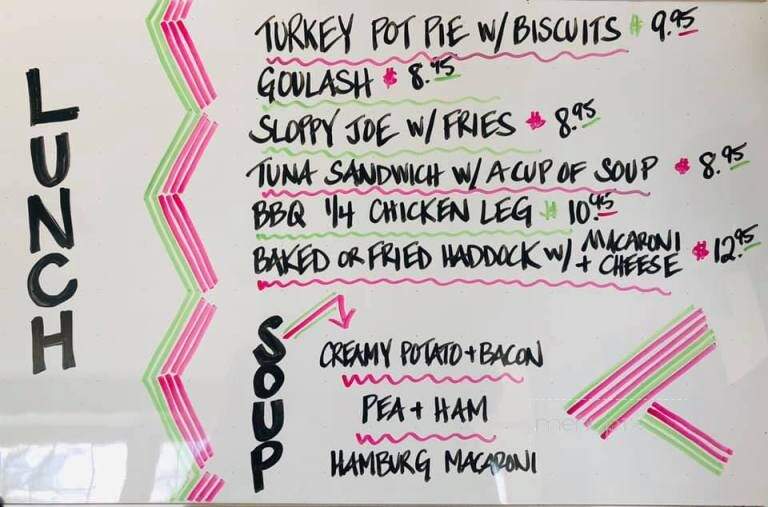 LUNCH
TURKEY POT PIE W/ BISCUITS $ 9.95
GOULASH $ 8.95
SLOPPY JOE W/ FRIES $ 8.95
TUNA SANDWICH W/ A CUP OF SOUP $ 8.95
BBQ 1/4 CHICKEN LEG $ 10.95
BAKED OR FRIED HADDOCK W/ MACARONI + CHEESE $ 12.95
SOUP
CREAMY POTATO + BACON
PEA + HAM
HAMBURG MACARONI